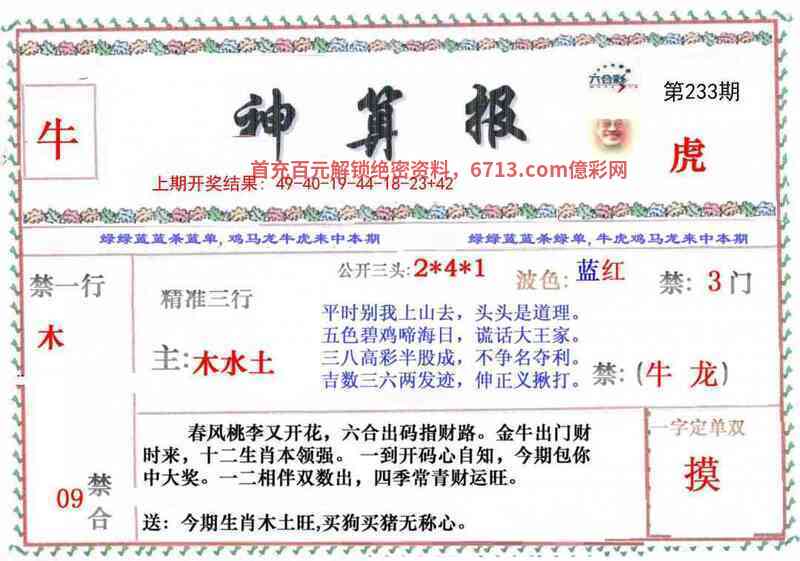 神算报
六合彩
第233期
牛
虎
首充百元解锁绝密资料，6713.com億彩网
上期开奖结果：49-40-19-44-18-23+42
绿绿蓝蓝杀蓝单,鸡马龙牛虎来中本期
绿绿蓝蓝杀绿单,牛虎鸡马龙来中本期
禁一行
木
精准三行
主:木水土
公开三头:2*4*1
波色:蓝红
禁:3门
平时别我上山去，头头是道理。
五色碧鸡啼海日，谎话大王家。
三八高彩半股成，不争名夺利。
吉数三六两发迹，伸正义揪打。
禁:(牛 龙)
09
禁合
春风桃李又开花，六合出码指财路。金牛出门财
时来，十二生肖本领强。 一到开码心自知，今期包你
中大奖。一二相伴双数出，四季常青财运旺。
送：今期生肖木土旺,买狗买猪无称心。
一字定单双
摸